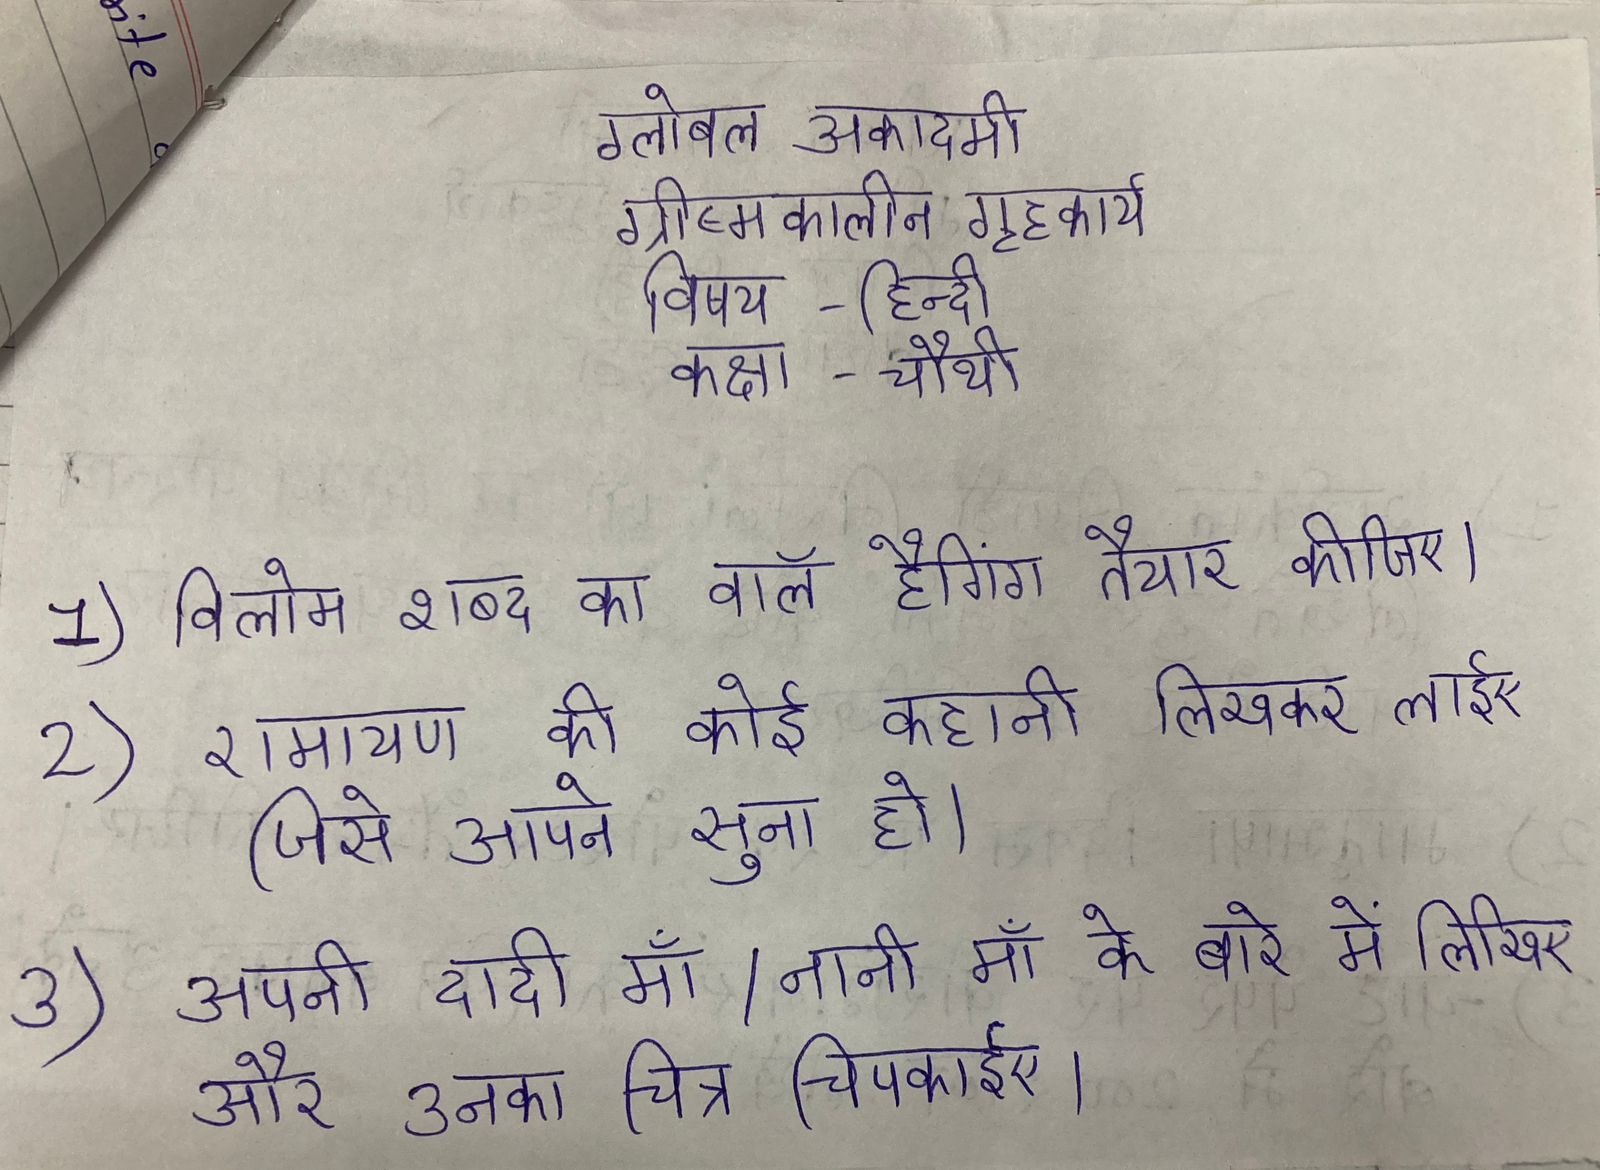 ite
ग्लोबल अकादमी
ग्रीष्मकालीन गृहकार्य
विषय - हिन्दी
कक्षा - चौथी
1) विलोम शब्द का वालॅ हैगिंग तैयार कीजिए।
2) रामायण की कोई कहानी लिखकर लाईए
जिसे आपने सुना हो।
3) अपनी दादी माँ / नानी माँ के बारे में लिखिए
और उनका चित्र चिपकाईए।